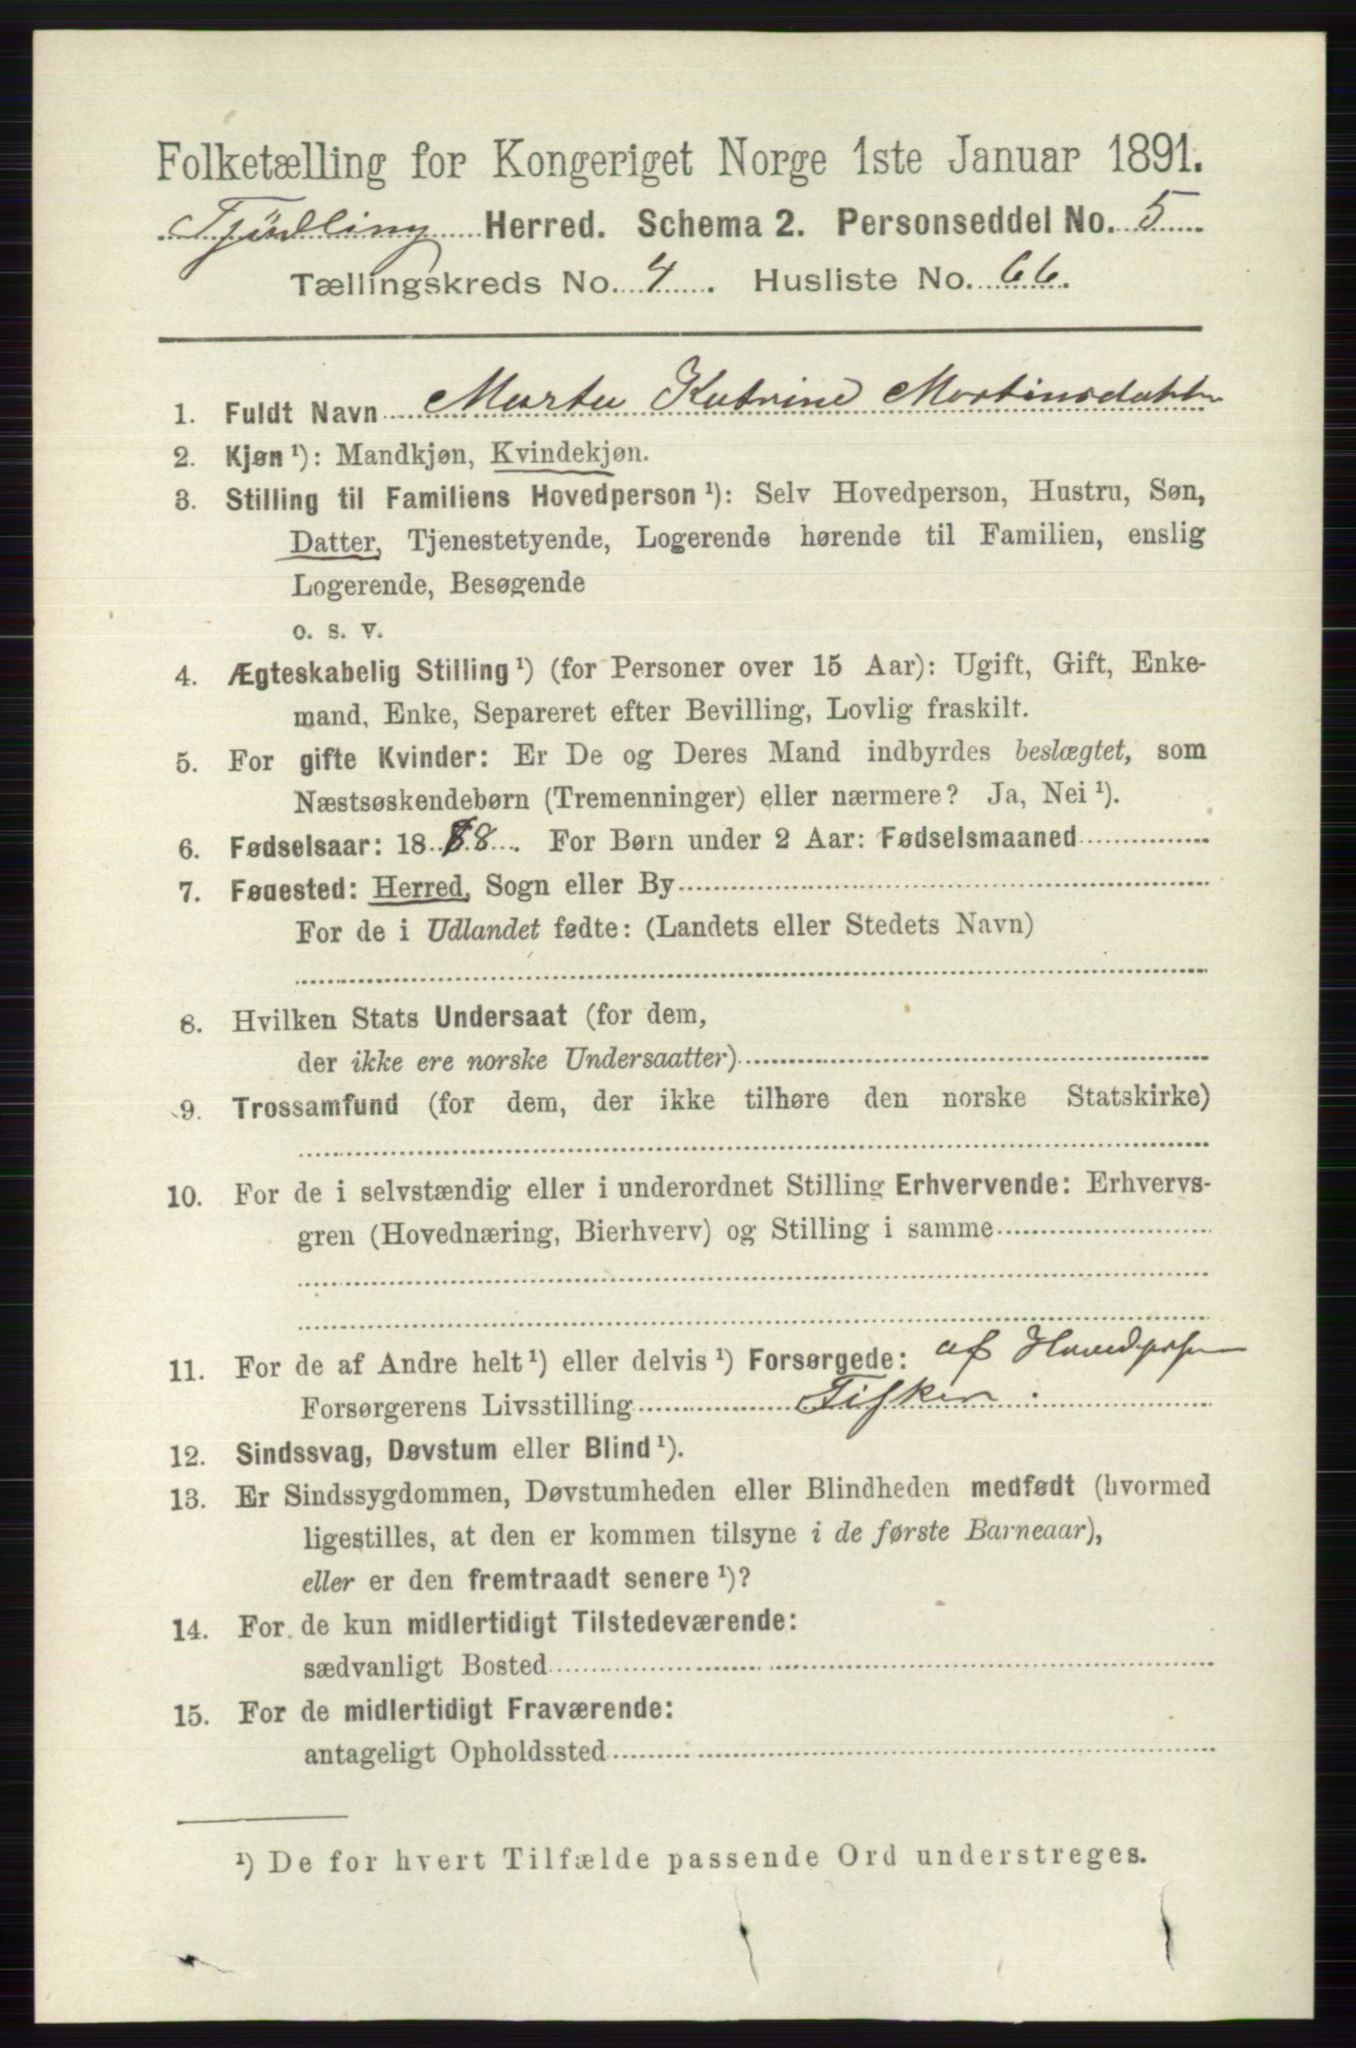 Folketælling for Kongeriget Norge 1ste Januar 1891.
Tjödling Herred. Schema 2. Personseddel No. 5
Tællingskreds No. 4. Husliste No. 66.
1. Fuldt Navn Marta Katrine Martinsdatter
2. Kjøn ¹): Mandkjøn, Kvindekjøn.
3. Stilling til Familiens Hovedperson ¹): Selv Hovedperson, Hustru, Søn,
Datter, Tjenestetyende, Logerende hørende til Familien, enslig
Logerende, Besøgende
o. s. v.
4. Ægteskabelig Stilling ¹) (for Personer over 15 Aar): Ugift, Gift, Enke-
mand, Enke, Separeret efter Bevilling, Lovlig fraskilt.
5. For gifte Kvinder: Er De og Deres Mand indbyrdes beslægtet, som
Næstsøskendebørn (Tremenninger) eller nærmere? Ja, Nei ¹).
6. Fødselsaar: 1888. For Børn under 2 Aar: Fødselsmaaned
7. Fødested: Herred, Sogn eller By
For de i Udlandet fødte: (Landets eller Stedets Navn)
8. Hvilken Stats Undersaat (for dem,
der ikke ere norske Undersaatter)
9. Trossamfund (for dem, der ikke tilhøre den norske Statskirke)
10. For de i selvstændig eller i underordnet Stilling Erhvervende: Erhvervs-
gren (Hovednæring, Bierhverv) og Stilling i samme
11. For de af Andre helt ¹) eller delvis ¹) Forsørgede: af Hovedpersn
Forsørgerens Livsstilling Fisker.
12. Sindssvag, Døvstum eller Blind ¹).
13. Er Sindssygdommen, Døvstumheden eller Blindheden medfødt (hvormed
ligestilles, at den er kommen tilsyne i de første Barneaar),
eller er den fremtraadt senere ¹)?
14. For de kun midlertidigt Tilstedeværende:
sædvanligt Bosted
15. For de midlertidigt Fraværende:
antageligt Opholdssted
¹) De for hvert Tilfælde passende Ord understreges.